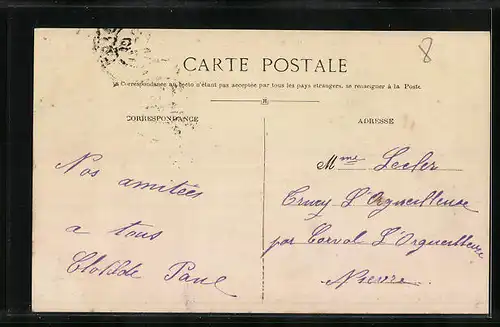 8
CARTE POSTALE
La Correspondance au recto n'étant pas acceptée par tous les pays étrangers, se renseigner à la Poste.
CORRESPONDANCE
Nos amitées
a tous
Clotilde Pane
ADRESSE
Mme Lecler
Crucy L'Orgueilleuse
par Corvol L'Orgueilleux
Nievre